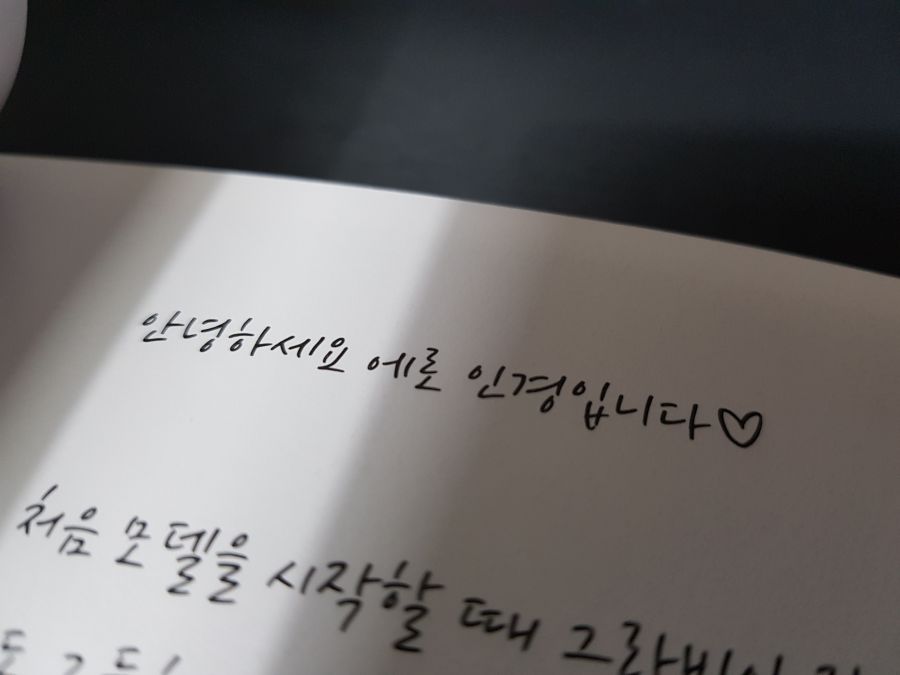 안녕하세요 에로 인경입니다♡
처음 모델을 시작할 때